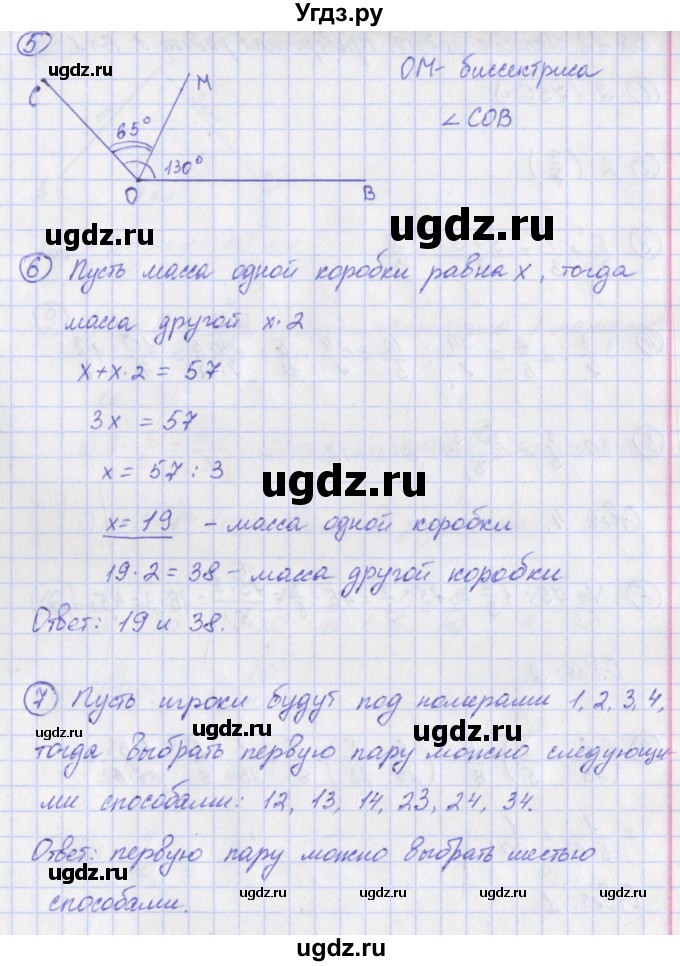 Угдз.ру
5
ugdz.ru
C
M
65°
130°
O
B
OM- биссектриса
∠COB
ugdz.ru
ugdz.ru
ugdz.ru
6 Пусть масса одной коробки равна x, тогда
масса другой x·2
x+x·2 = 57
3x = 57
x = 57 : 3
ugdz.ru
x= 19 - масса одной коробки
19·2=38 - масса другой коробки
ugdz.ru
ugdz.ru
Ответ: 19 и 38.
ugdz.ru
7 Пусть игроки будут под номерами 1, 2, 3, 4,
ugdz.ru
ugdz.ru
ugdz.ru
тогда выбрать первую пару можно следующи-
ми способами: 12, 13, 14, 23, 24, 34.
Ответ: первую пару можно выбрать шестью
ugdz.ru
ugdz.ru
ugdz.ru
способами.
ugdz.ru